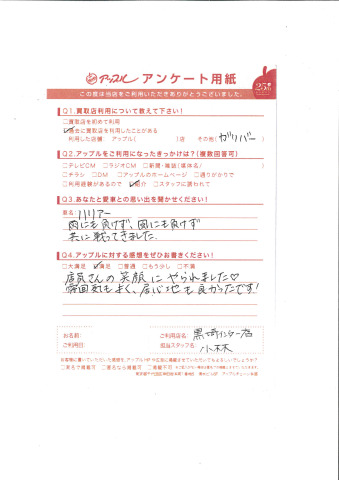 アップル アンケート用紙
25th
この度は当店をご利用いただきありがとうございました。
Q1.買取店利用について教えて下さい!
□買取店を初めて利用
☑過去に買取店を利用したことがある
利用した店舗 アップル( )店 その他(ガリバー)
Q2.アップルをご利用になったきっかけは?(複数回答可)
□テレビCM □ラジオCM □新聞・雑誌(媒体名 )
□チラシ □DM □アップルのホームページ □通りがかりで
□利用経験があるので ☑紹介 □スタッフに誘われて
Q3.あなたと愛車との思い出を聞かせてください!
車名: ハリアー
雨にも負けず、風にも負けず
共に戦ってきました。
Q4.アップルに対する感想をぜひお書きください!
□大満足 ☑満足 □普通 □もう少し □不満
店員さんの笑顔にやられました♡
雰囲気もよく、居心地も良かったです!
お名前: ご利用店名: 黒埼インター店
ご利用日: 担当スタッフ名: 小林
お客様に書いていただいた感想を、アップルHPや広告に掲載させていただいてもよろしいでしょうか?
□実名で掲載可 □匿名なら掲載可 □掲載不可